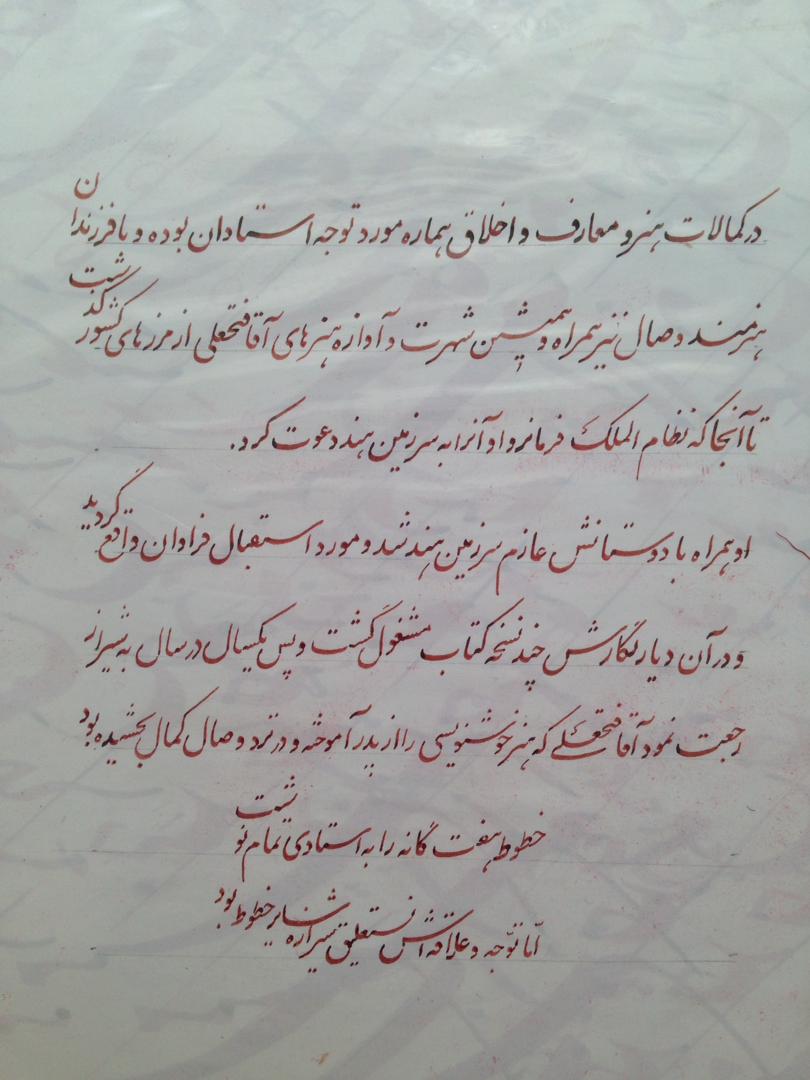 در کمالات هنر و معارف و اخلاق هماره مورد توجه استادان بوده و با فرزندان
هنرمند وصال نیز همراه و همنشین شهرت و آوازه هنرهای آقا فتحعلی از مرزهای کشور گذشت
تا آنجا که نظام الملک فرمانروا او آنرا به سرزمین هند دعوت کرد.
او همراه با دوستانش عازم سرزمین هند شد و مورد استقبال فراوان واقع گردید
و در آن دیار نگارش چند نسخه کتاب مشغول گشت و پس یکسال در سال به شیراز
رجعت نمود آقا فتحعلی که هنر خوشنویسی را از پدر آموخته و در نزد وصال کمال بخشیده بود
خطوط هفت گانه را به استادی تمام نوشت
امّا توّجه و علاقه اش نستعلیق سایر خطوط بود